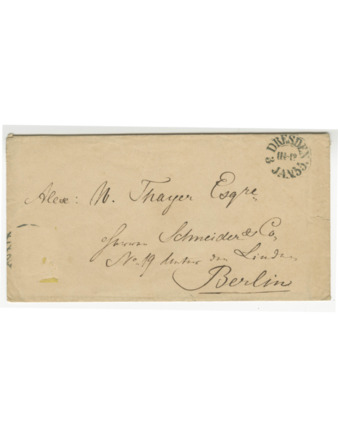 8 DRESDEN
III-IV
JAN 55.
Alex: W. Thayer Esqre
Herrn Schneider & Co,
No. 19 Unter den Linden
Berlin